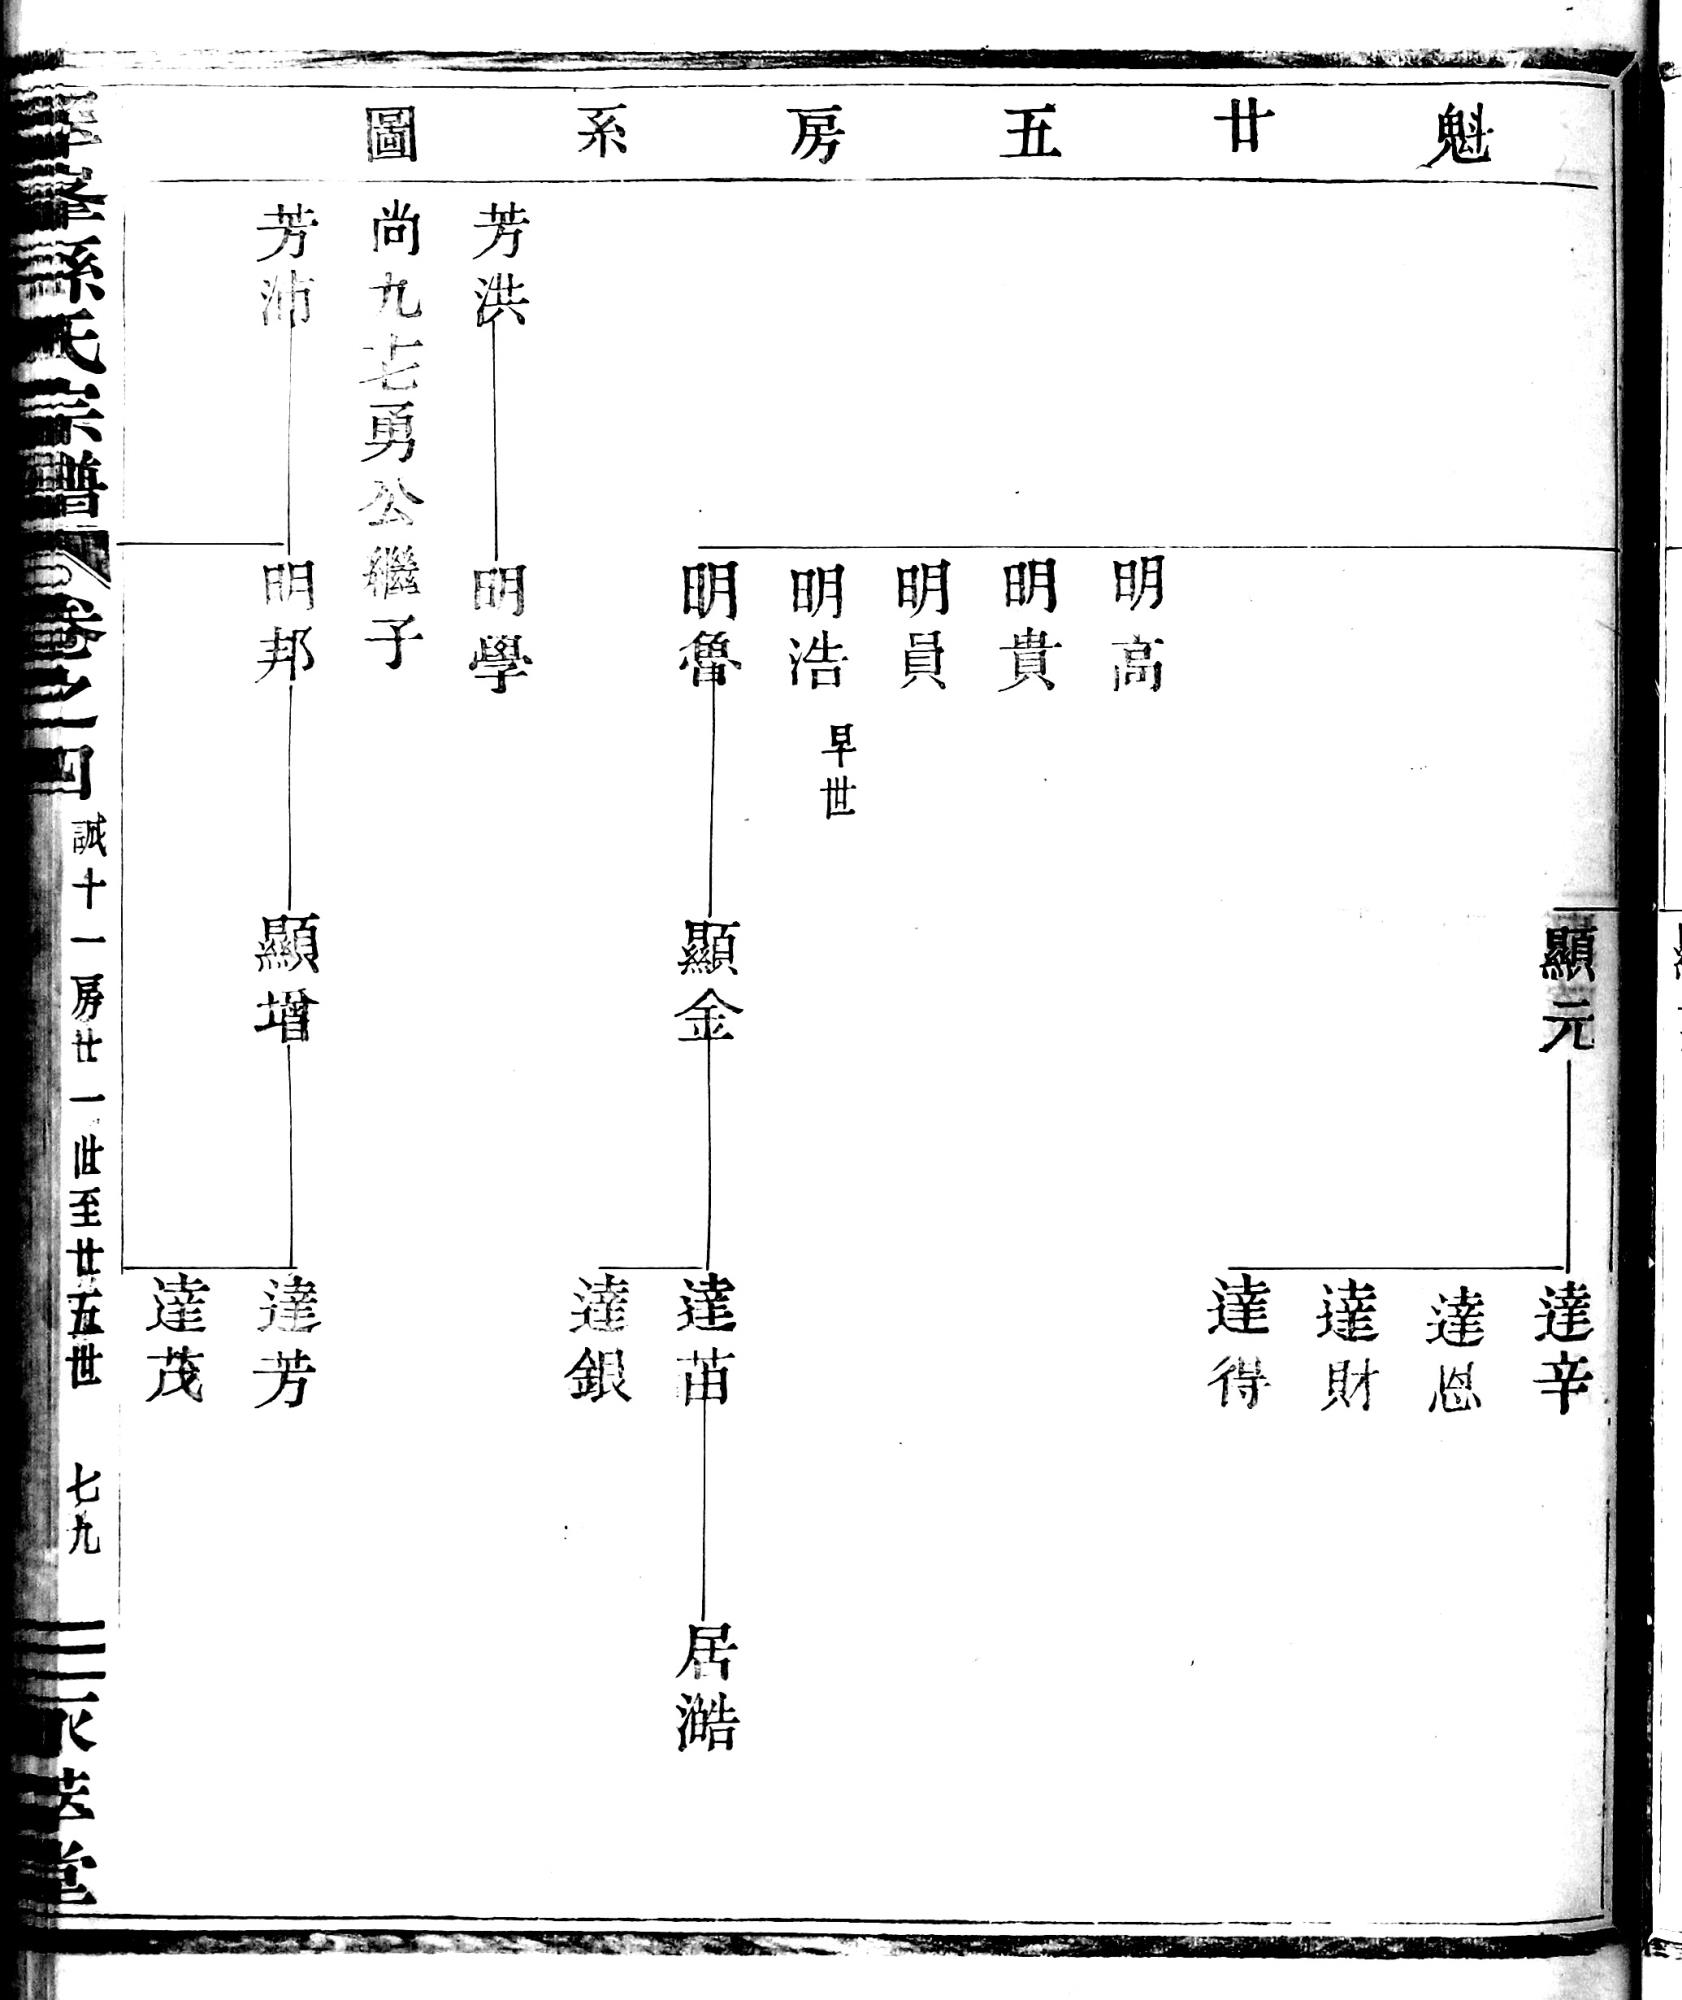 魁廿五房系圖
顯元
達辛
達恩
達財
達得
明高
明貴
明員
明浩
早世
明魯
顯金
達苗
達銀
居澔
芳洪
明學
尚九七勇公繼子
芳沛
明邦
顯增
達芳
達茂
峯孫氏宗譜
卷之四
誠十一房廿一世至廿五世
七九
堂